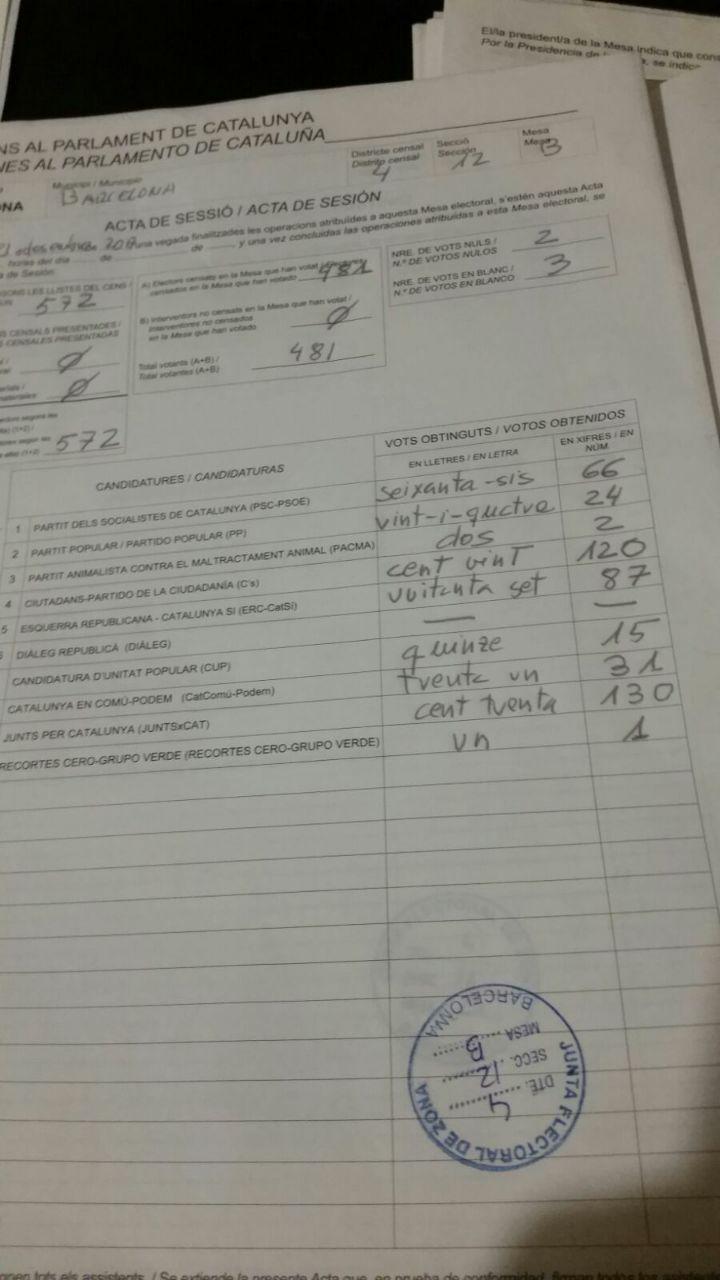 El/la president/a de la Mesa indica que cons
Por la Presidencia de
, se indica
NS AL PARLAMENT DE CATALUNYA
NES AL PARLAMENTO DE CATALUÑA
Districte censal
Distrito censal
4
Secció
Sección
12
Mesa
Mesa
B
Municipi / Municipio
NA
BARCELONA
ACTA DE SESSIÓ / ACTA DE SESIÓN
una vegada finalitzades les operacions atribuïdes a aquesta Mesa electoral, s'estén aquesta Acta
horas del día de de y una vez concluidas las operaciones atribuidas a esta Mesa electoral, se
a de Sesión
GONS LES LLISTES DEL CENS /
572
A) Electors censats en la Mesa que han votat /
censados en la Mesa que han votado
481
NRE. DE VOTS NULS /
N.º DE VOTOS NULOS
2
NRE. DE VOTS EN BLANC /
N.º DE VOTOS EN BLANCO
3
S CENSALS PRESENTADES /
S CENSALES PRESENTADAS
Ø
Ø
B) Interventors no censats en la Mesa que han votat /
Interventores no censados
en la Mesa que han votado
Ø
Total votants (A+B) /
Total votantes (A+B)
481
572
CANDIDATURES / CANDIDATURAS
VOTS OBTINGUTS / VOTOS OBTENIDOS
EN LLETRES / EN LETRA
EN XIFRES / EN NÚM.
1 PARTIT DELS SOCIALISTES DE CATALUNYA (PSC-PSOE) seixanta-sis 66
2 PARTIT POPULAR / PARTIDO POPULAR (PP) vint-i-quatre 24
3 PARTIT ANIMALISTA CONTRA EL MALTRACTAMENT ANIMAL (PACMA) dos 2
4 CIUTADANS-PARTIDO DE LA CIUDADANÍA (C's) cent vinT 120
5 ESQUERRA REPUBLICANA - CATALUNYA SÍ (ERC-CatSí) vuitanta set 87
DIÀLEG REPUBLICÀ (DIÀLEG) — —
CANDIDATURA D'UNITAT POPULAR (CUP) quinze 15
CATALUNYA EN COMÚ-PODEM (CatComú-Podem) trenta un 31
JUNTS PER CATALUNYA (JUNTSxCAT) cent trenta 130
RECORTES CERO-GRUPO VERDE (RECORTES CERO-GRUPO VERDE) un 1
JUNTA ELECTORAL DE ZONA
DTE. 4
SECC. 12
MESA B
BARCELONA
onen tots els assistents. / Se extiende la presente Acta que, en prueba de conformidad, firman todos los asistentes